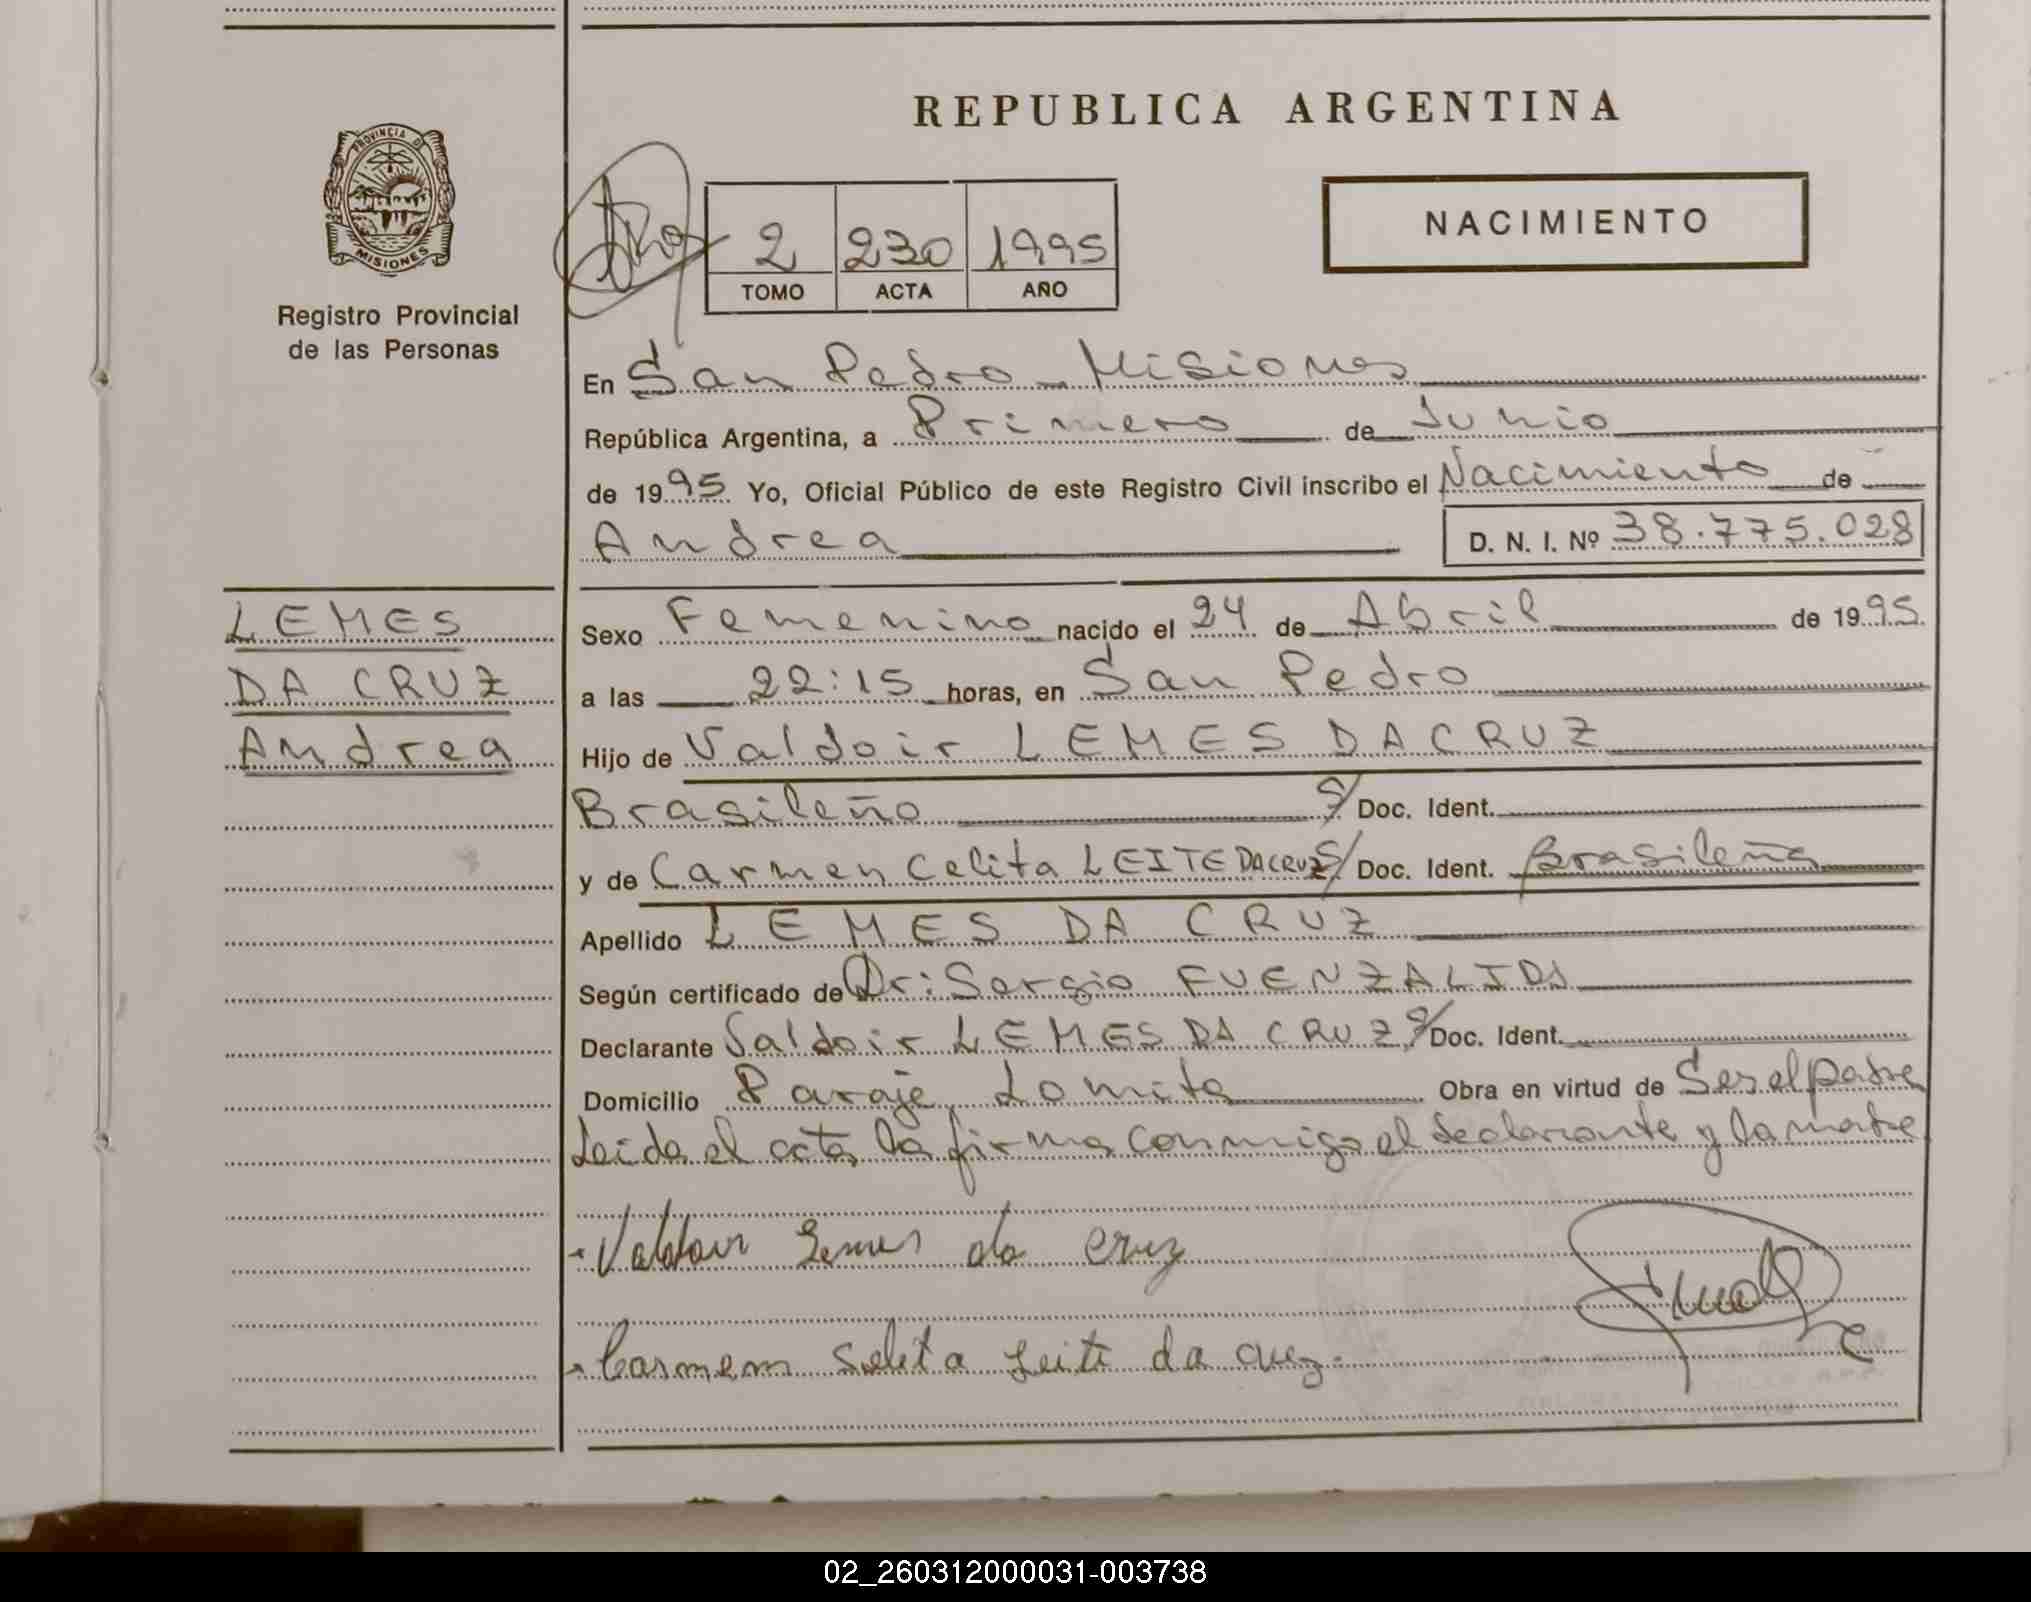 REPUBLICA ARGENTINA
PROVINCIA DE
MISIONES
Registro Provincial
de las Personas
2 230 1995
TOMO ACTA AÑO
NACIMIENTO
En San Pedro - Misiones
República Argentina, a Primero de Junio
de 1995 Yo, Oficial Público de este Registro Civil inscribo el Nacimiento de
Andrea D. N. I. Nº 38.775.028
LEMES
DA CRUZ
Andrea
Sexo Femenino nacido el 24 de Abril de 1995
a las 22:15 horas, en San Pedro
Hijo de Valdoir LEMES DA CRUZ
Brasileño S/ Doc. Ident.
y de Carmen Celita LEITE DA CRUZ S/ Doc. Ident. Brasileña
Apellido LEMES DA CRUZ
Según certificado de Dr: Sergio FUENZALIDA
Declarante Valdoir LEMES DA CRUZ S/ Doc. Ident.
Domicilio Paraje Lomita Obra en virtud de Ser el padre
Leida el acta la firma conmigo el declarante y la madre
Valdoir Lemes da cruz
Carmem Selita Leite da cruz.
02_260312000031-003738